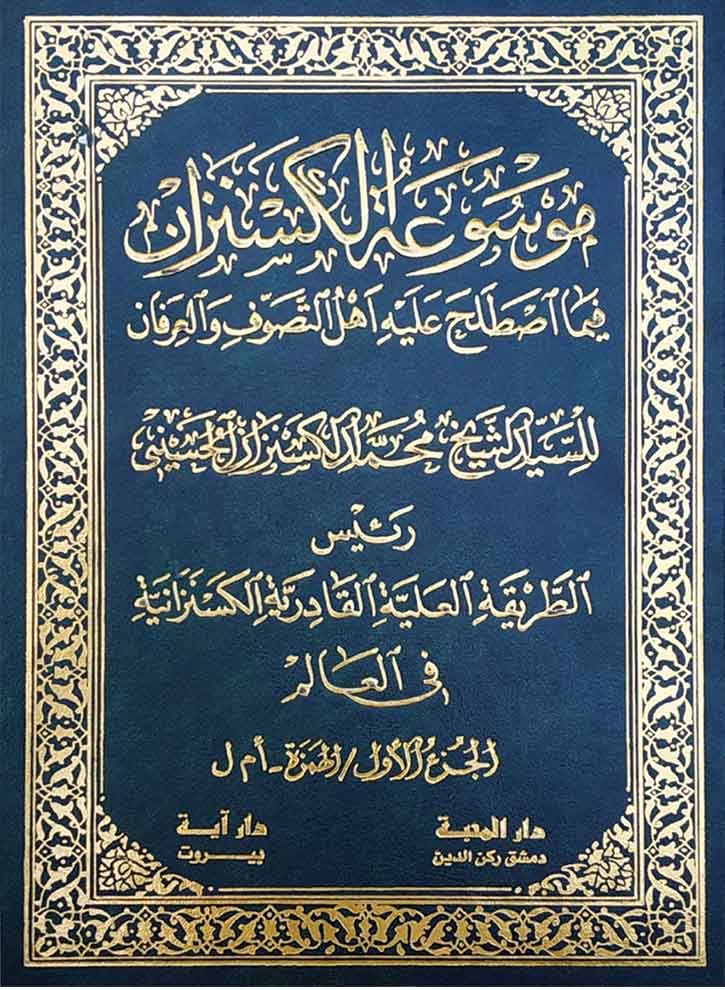 موسوعة الكسنزان
فيما اصطلح عليه أهل التصوف والعرفان
للسيد الشيخ محمد الكسنزان الحسيني
رئيس
الطريقة العلية القادرية الكسنزانية
في العالم
الجزء الأول / الهمزة - أ م ل
دار المحبة
دمشق ركن الدين
دار آية
بيروت